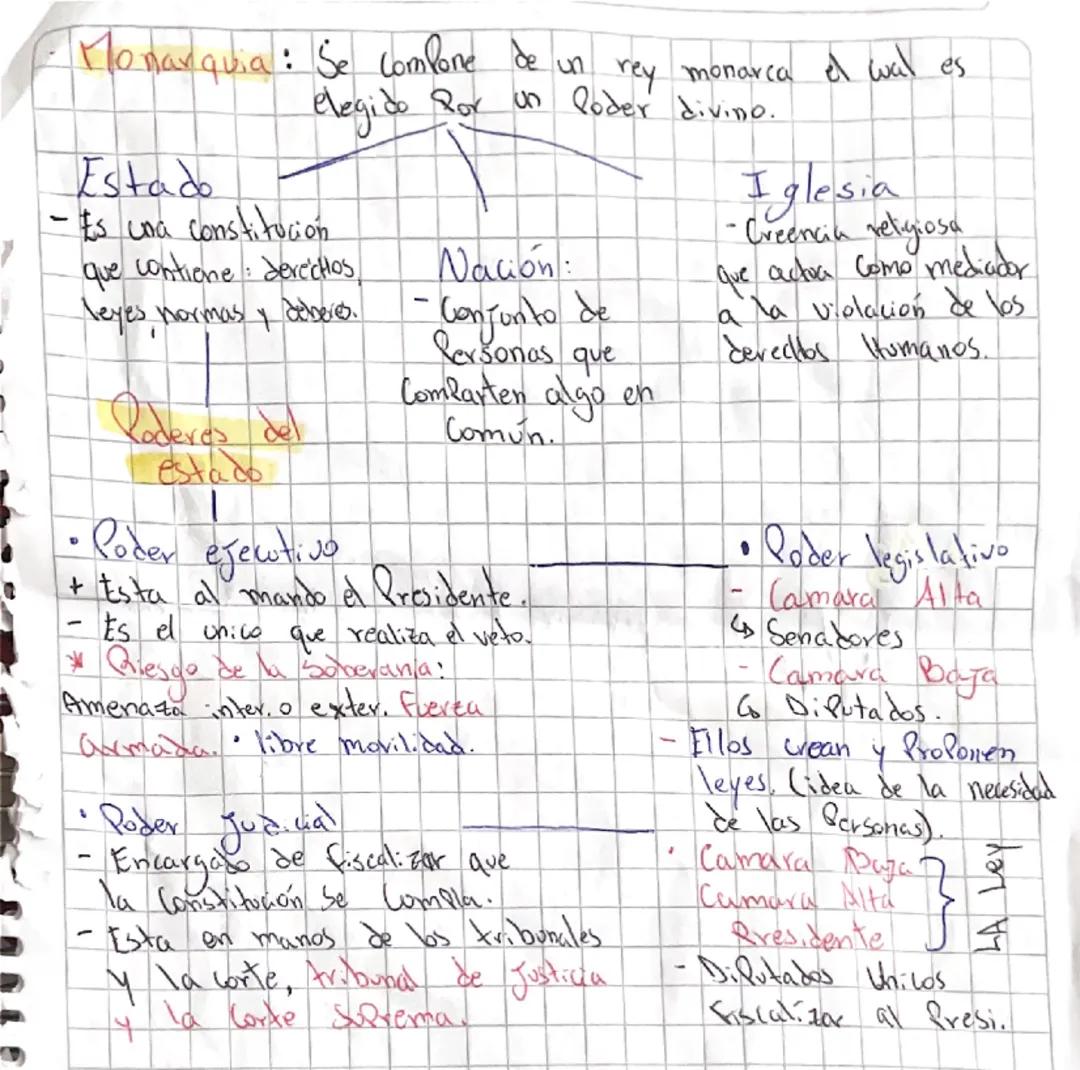 Monarquia: Se compone de un rey monarca el cual es
elegido por un Poder divino.
Estado
- Es una constitución
que contiene: derechos,
leyes, normas y deberes.
Nación:
- Conjunto de
Personas que
comparten algo en
común.
Iglesia
- Creencia religiosa
que actua como mediador
a la violación de los
derechos Humanos.
Poderes del
estado
• Poder ejecutivo
+ Esta al mando el Presidente.
- Es el unico que realiza el veto.
* Riesgo de la soberanía:
Amenaza inter. o exter. Fuerza
armada. • libre movilidad.
• Poder legislativo
- Camara Alta
↳ Senadores
- Camara Baja
↳ Diputados.
- Ellos crean y Proponen
leyes. (idea de la necesidad
de las Personas).
• Camara Baja
Camara Alta
Presidente
LA Ley
- Diputados Unicos
Fiscalizar al Presi.
• Poder Judicial
- Encargado de fiscalizar que
la Constitución se cumpla.
- Esta en manos de los tribunales
y la corte, tribunal de Justicia
y la Corte Suprema.